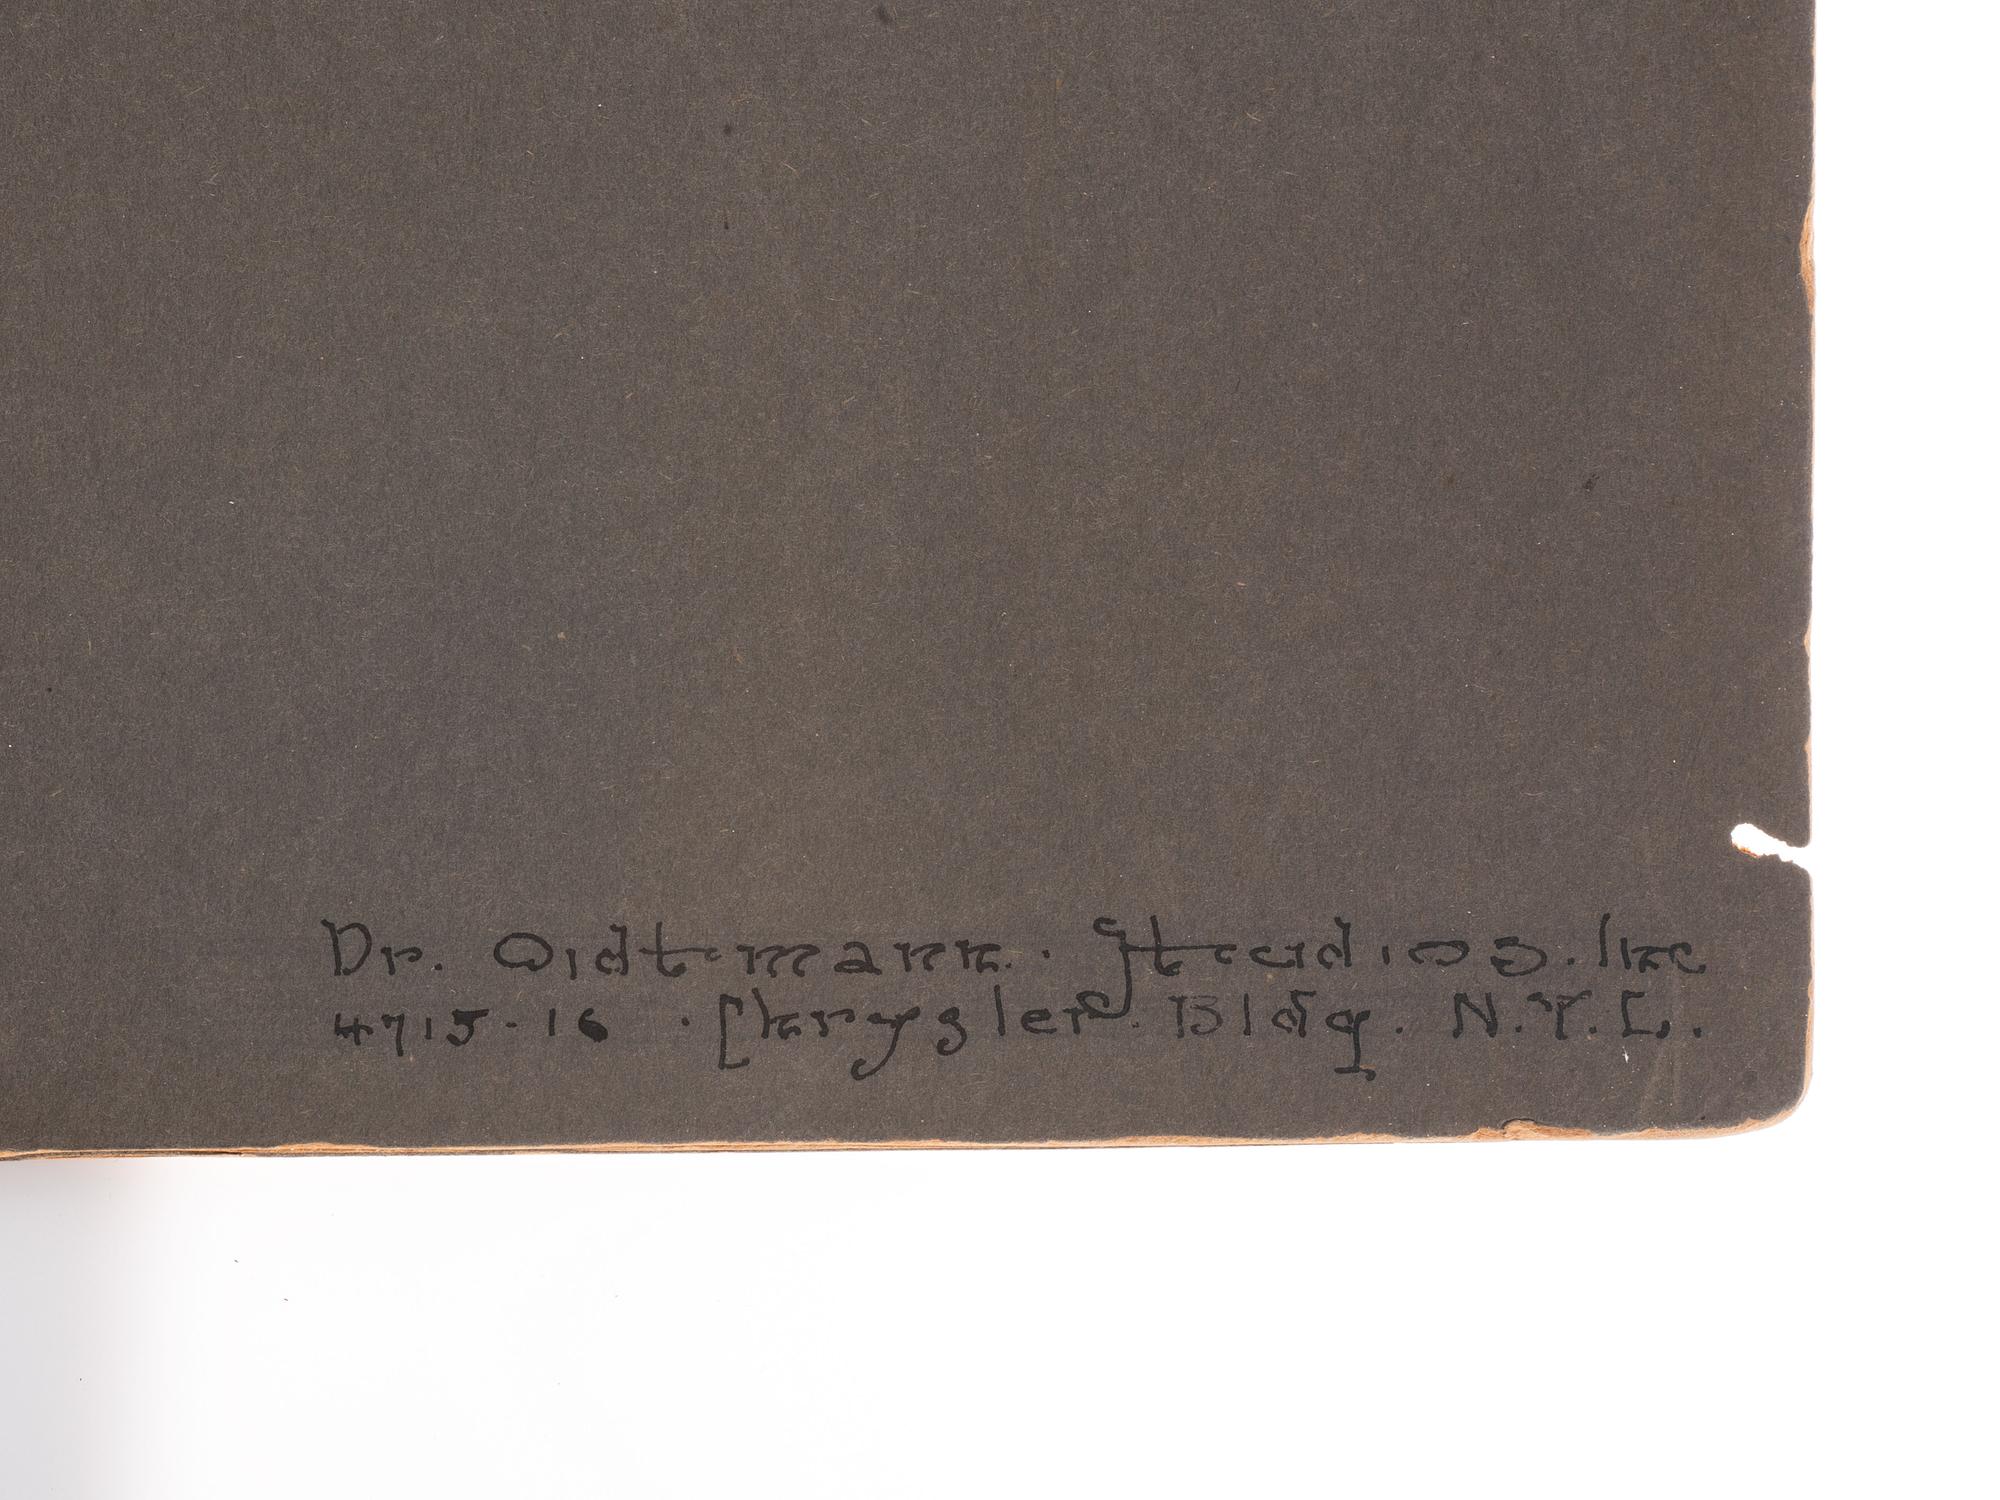 Dr. Oidtmann. Studios. Inc
4715-16 · Chrysler. Bldg. N.Y.C.